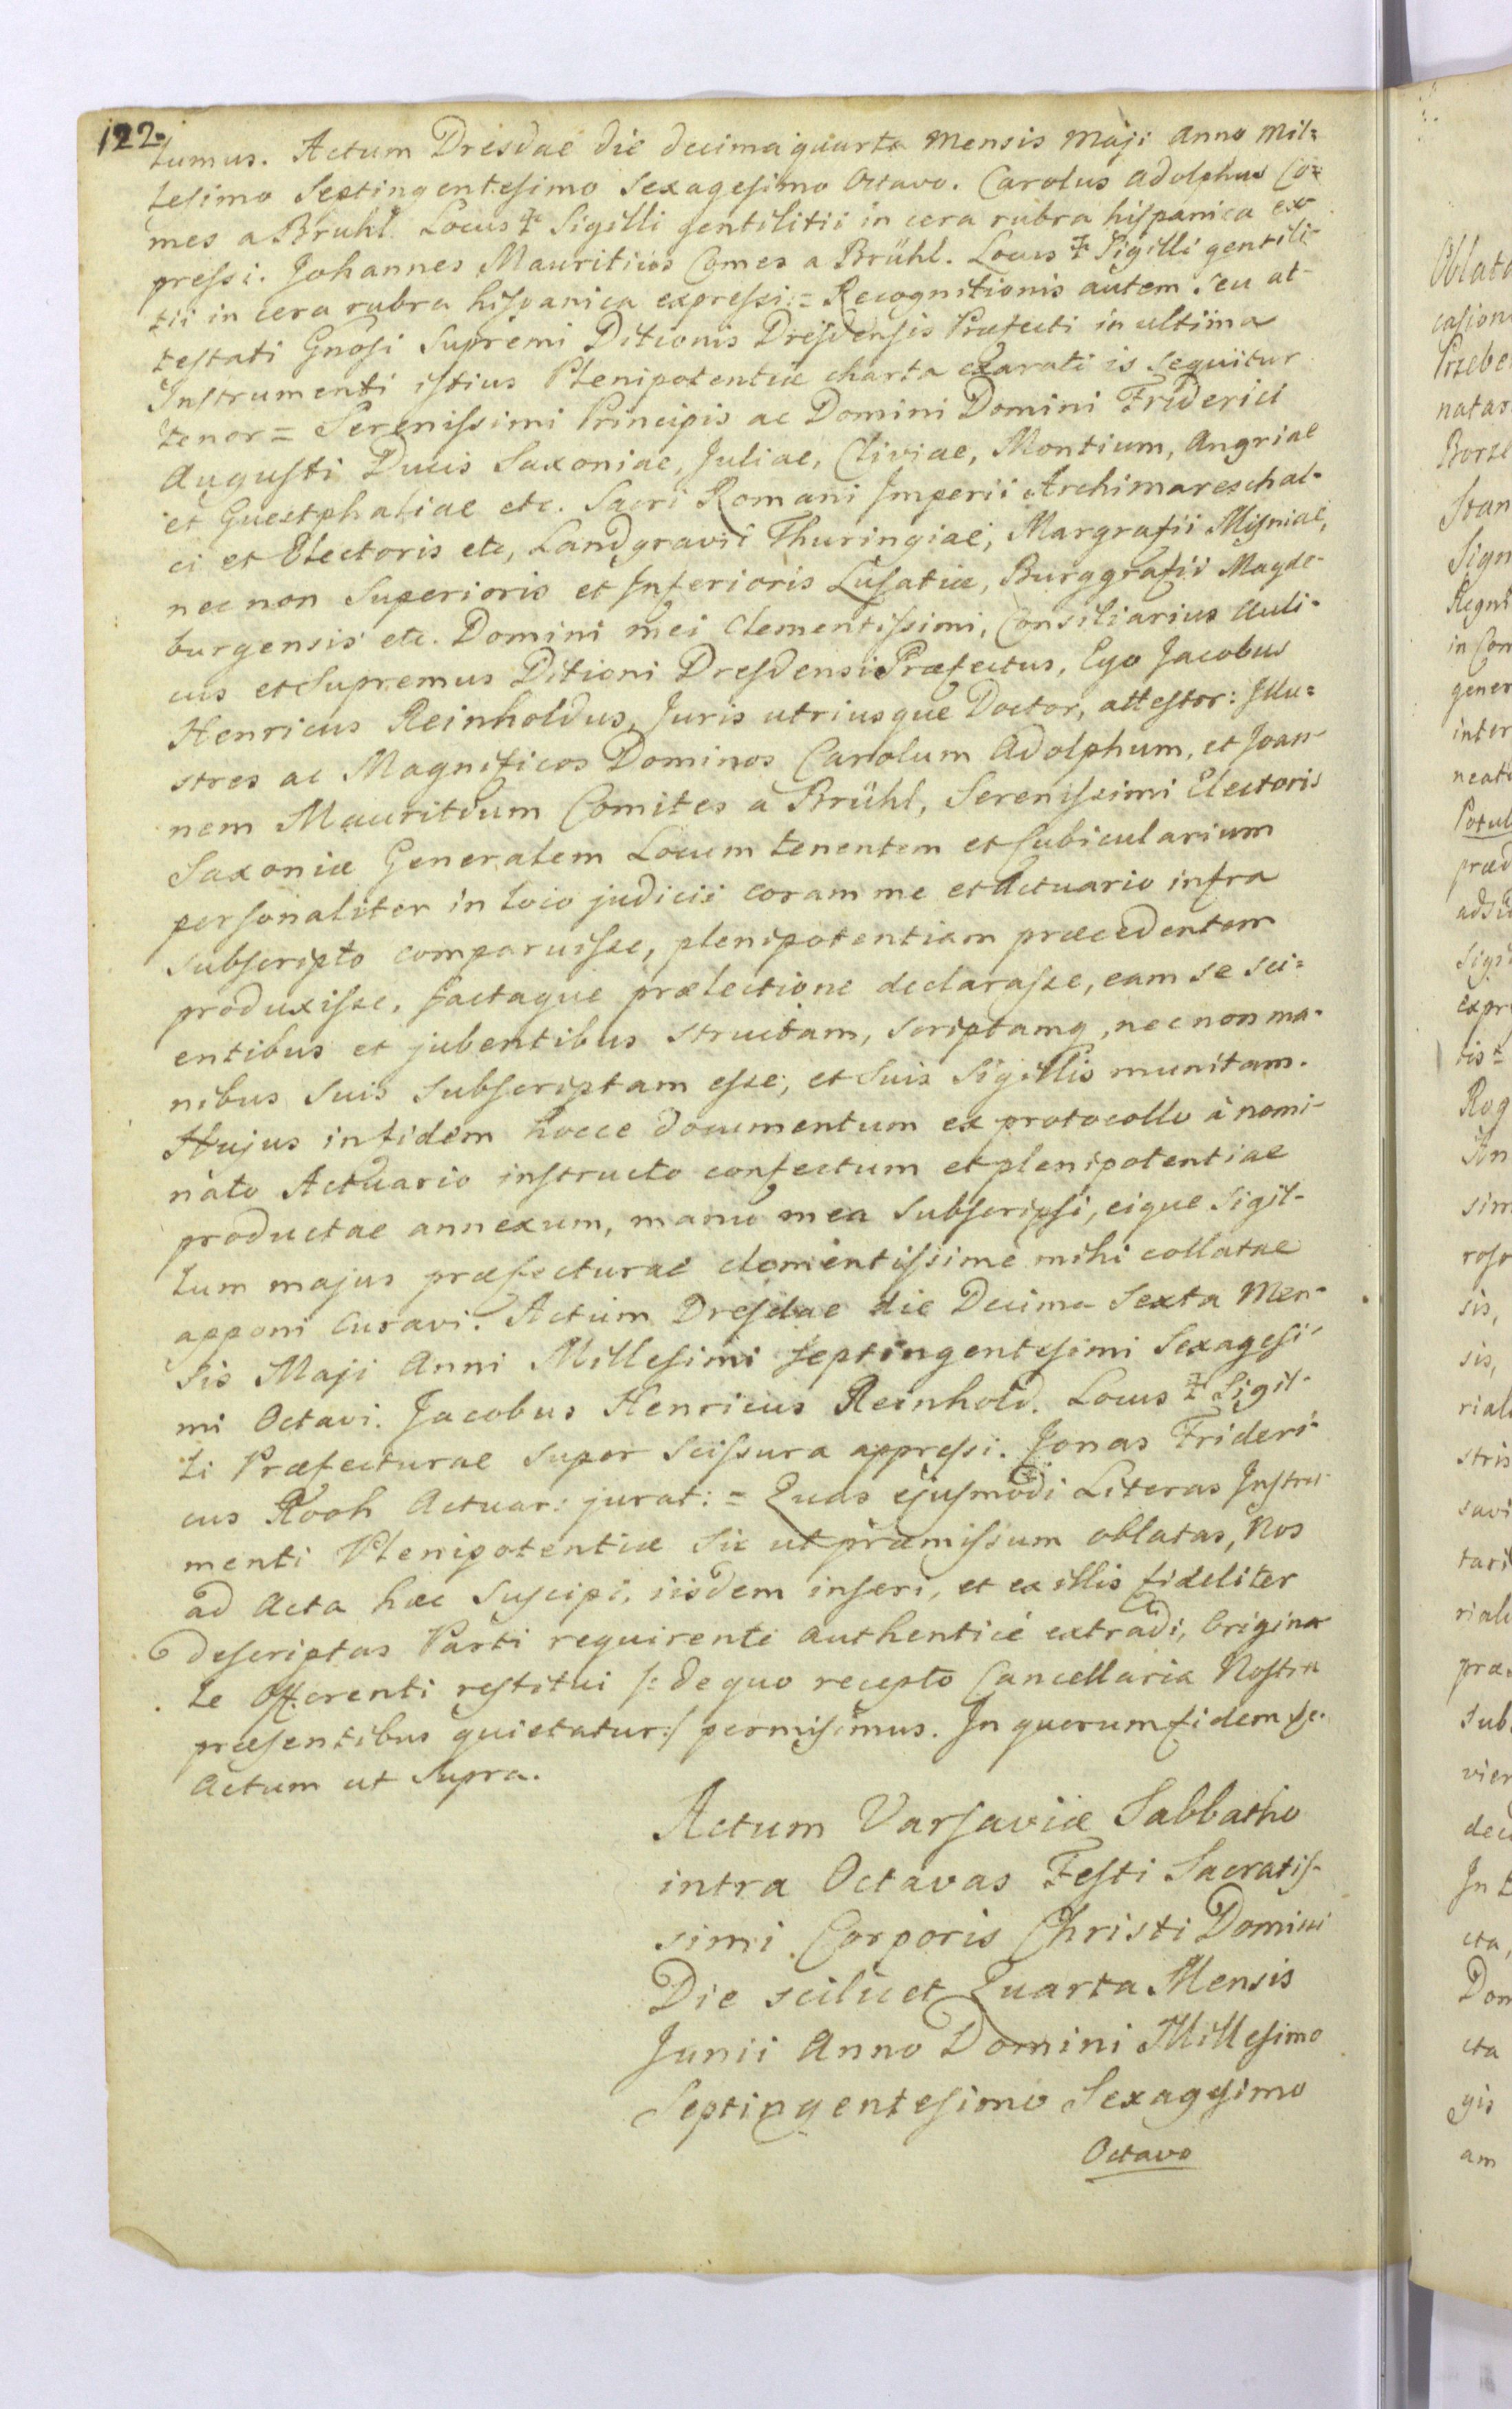 122.
lumus. Actum Dresdae die decima quarta mensis Maji Anno Mil=
lesimo Septingentesimo Sexagesimo Octavo. Carolus Adolphus Co=
mes a Brühl. Locus ✝ Sigilli gentilitii in cera rubra hispanica ex
pressi. Johannes Mauritius Comes a Brühl. Locus ✝ Sigilli gentili-
tii in cera rubra hispanica expressi. = Recognitionis autem seu at-
testati Gnosi Supremi Ditionis Dresdensis Praefecti in ultima
Instrumenti istius Plenipotentiæ charta exarati is sequitur
tenor = Serenissimi Principis ac Domini Domini Friderici
Augusti Ducis Saxoniae, Juliae, Cliviae, Montium, Angriae
et Guestphaliae etc. Sacri Romani Imperii Archimareschal-
ci et Electoris etc, Landgravii Thuringiae, Margrafii Misniae,
nec non Superioris et Inferioris Lusatiæ, Burggrafii Magde-
burgensis etc. Domini mei Clementissimi, Consiliarius Auli-
cus et Supremus Ditioni Dresdensi Præfectus, Ego Jacobus
Henricus Reinholdus, Juris utriusque Doctor, attestor: Illu=
stres ac Magnificos Dominos Carolum Adolphum, et Joan-
nem Mauritium Comites a Brühl, Serenissimi Electoris
Saxoniæ Generalem Locum tenentem et Cubicularium
personaliter in loco judicii coram me et Actuario infra
subscripto comparuisse, plenipotentiam præcedentem
produxisse, factaque prælectione declarasse, eam se sci=
entibus et jubentibus structam, scriptamq, nec non ma-
nibus suis subscriptam esse, et suis Sigillis munitam.
Hujus in fidem hocce documentum ex protocollo à nomi-
nato Actuario instructo confectum et plenipotentiae
productae annexum, manu mea subscripsi, eique Sigil-
lum majus præfecturae clementissime mihi collatae
apponi curavi. Actum Dresdae die Decima Sexta Men-
sis Maji Anni Millesimi septingentesimi Sexagesi-
mi Octavi. Jacobus Henricus Reinhold. Locus ✝ Sigil-
li Præfecturae super scissura appressi. Jonas Frideri-
cus Kooh Actuar: jurat: = Quas ejusmodi Literas Instru-
menti Plenipotentiæ sic ut præmissum oblatas, Nos
ad Acta hæc suscipi, iisdem inseri, et ex illis fideliter
descriptas Parti requirenti authenticè extradi, Origina-
le Offerenti restitui /: de quo recepto Cancellaria Nostra
præsentibus quietatur :/ permisimus. In quorum fidem etc.
Actum ut Supra.
Actum Varsaviæ Sabbatho
intra Octavas Festi Sacratis-
simi Corporis Christi Domini
Die scilicet Quarta Mensis
Junii Anno Domini Millesimo
Septingentesimo Sexagesimo
Octavo